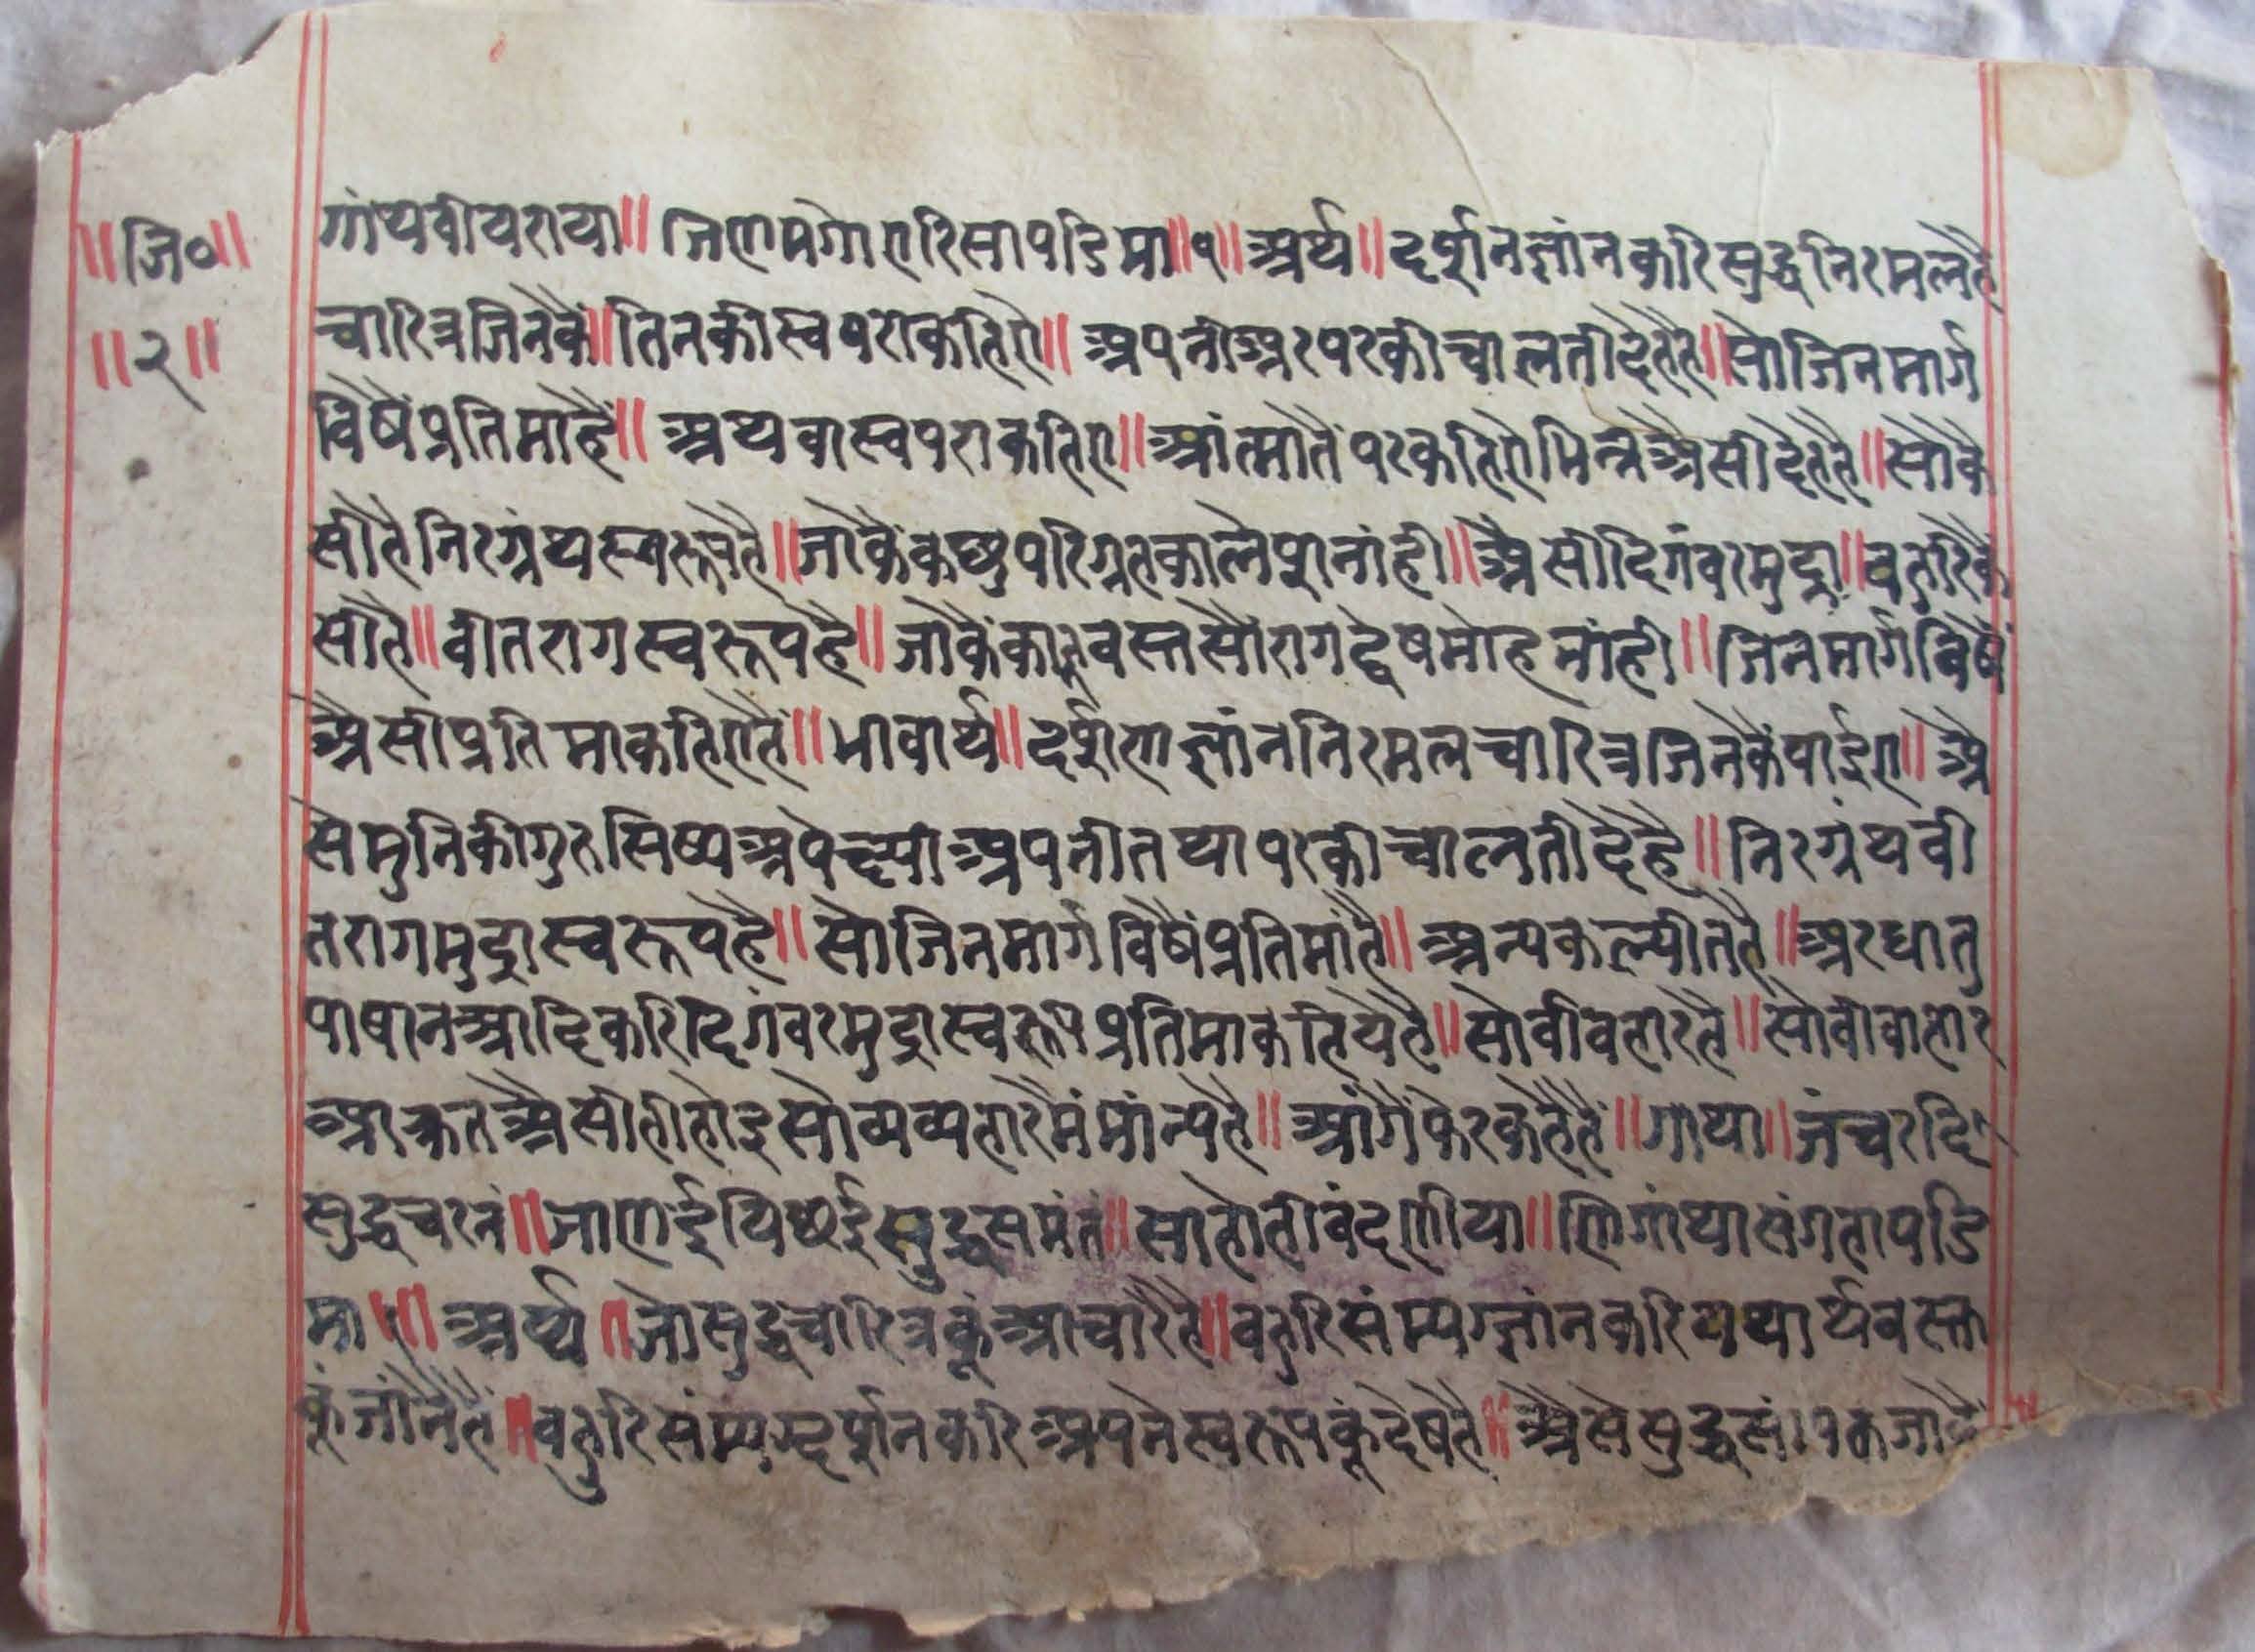 ॥जि०॥
॥२॥
गंथवीयराया॥ जिणमग्गेएरिसापडिमा॥१॥अर्थ॥दर्शनज्ञांनकरिसुद्धनिरमलहै
चारित्रजिनकैं॥तिनकीस्वपराकहिए॥अपनीअरपरकीचालतीदेहहै॥सोजिनमार्ग
विषैंप्रतिमाहैं॥अथवास्वपराकहिए॥आंत्मातैंपरकहिएभिन्नअैसीदेहहै॥सोकै
सीहैनिरग्रंथस्वरूपहै॥जाकैंकछुपरिग्रहकालेशनांही॥अैसीदिगंबरमुद्रा॥बहुरिकै
सीहै॥वीतरागस्वरूपहै॥जाकैंकाहूवस्तसौंरागद्वेषमोहनांही॥जिनमार्गविषैं
अैसीप्रतिमाकहिएहैं॥भावार्थ॥दर्शणज्ञांननिरमलचारित्रजिनकैंपाईए॥अै
सेमुनिकीगुरुसिष्यअपेक्ष्याअपनीतथापरकीचालतीदेहहै॥निरग्रंथवी
तरागमुद्रास्वरूपहै॥सोजिनमार्गविषैंप्रतिमांहै॥अन्यकल्पीतहै॥अरधातु
पाषानआदिकरिदिगंबरमुद्रास्वरूपप्रतिमाकहियेहै॥सोवीवहारहै॥सोवीवाहार
प्राक्रतअैसीहीहोइसोव्यव्यहारमैंमांन्यहै॥आंगैंफेरकहैहैं॥गाथा॥जंचरदि
सुद्धचरनं॥जाणईपिछईसुद्धसमंतं॥साहोतीवंदणीया॥णिगंथासंगहापडि
मा॥॥अर्थ॥जोसुद्धचारित्रकूंआचारैहै॥बहुरिसंम्यग्ज्ञांनकरियथार्थवस्त
कुंजांनैहैं॥बहुरिसंम्यग्दर्शनकरिअपनेस्वरूपकूंदेषैहै॥अैसेसुद्धसं